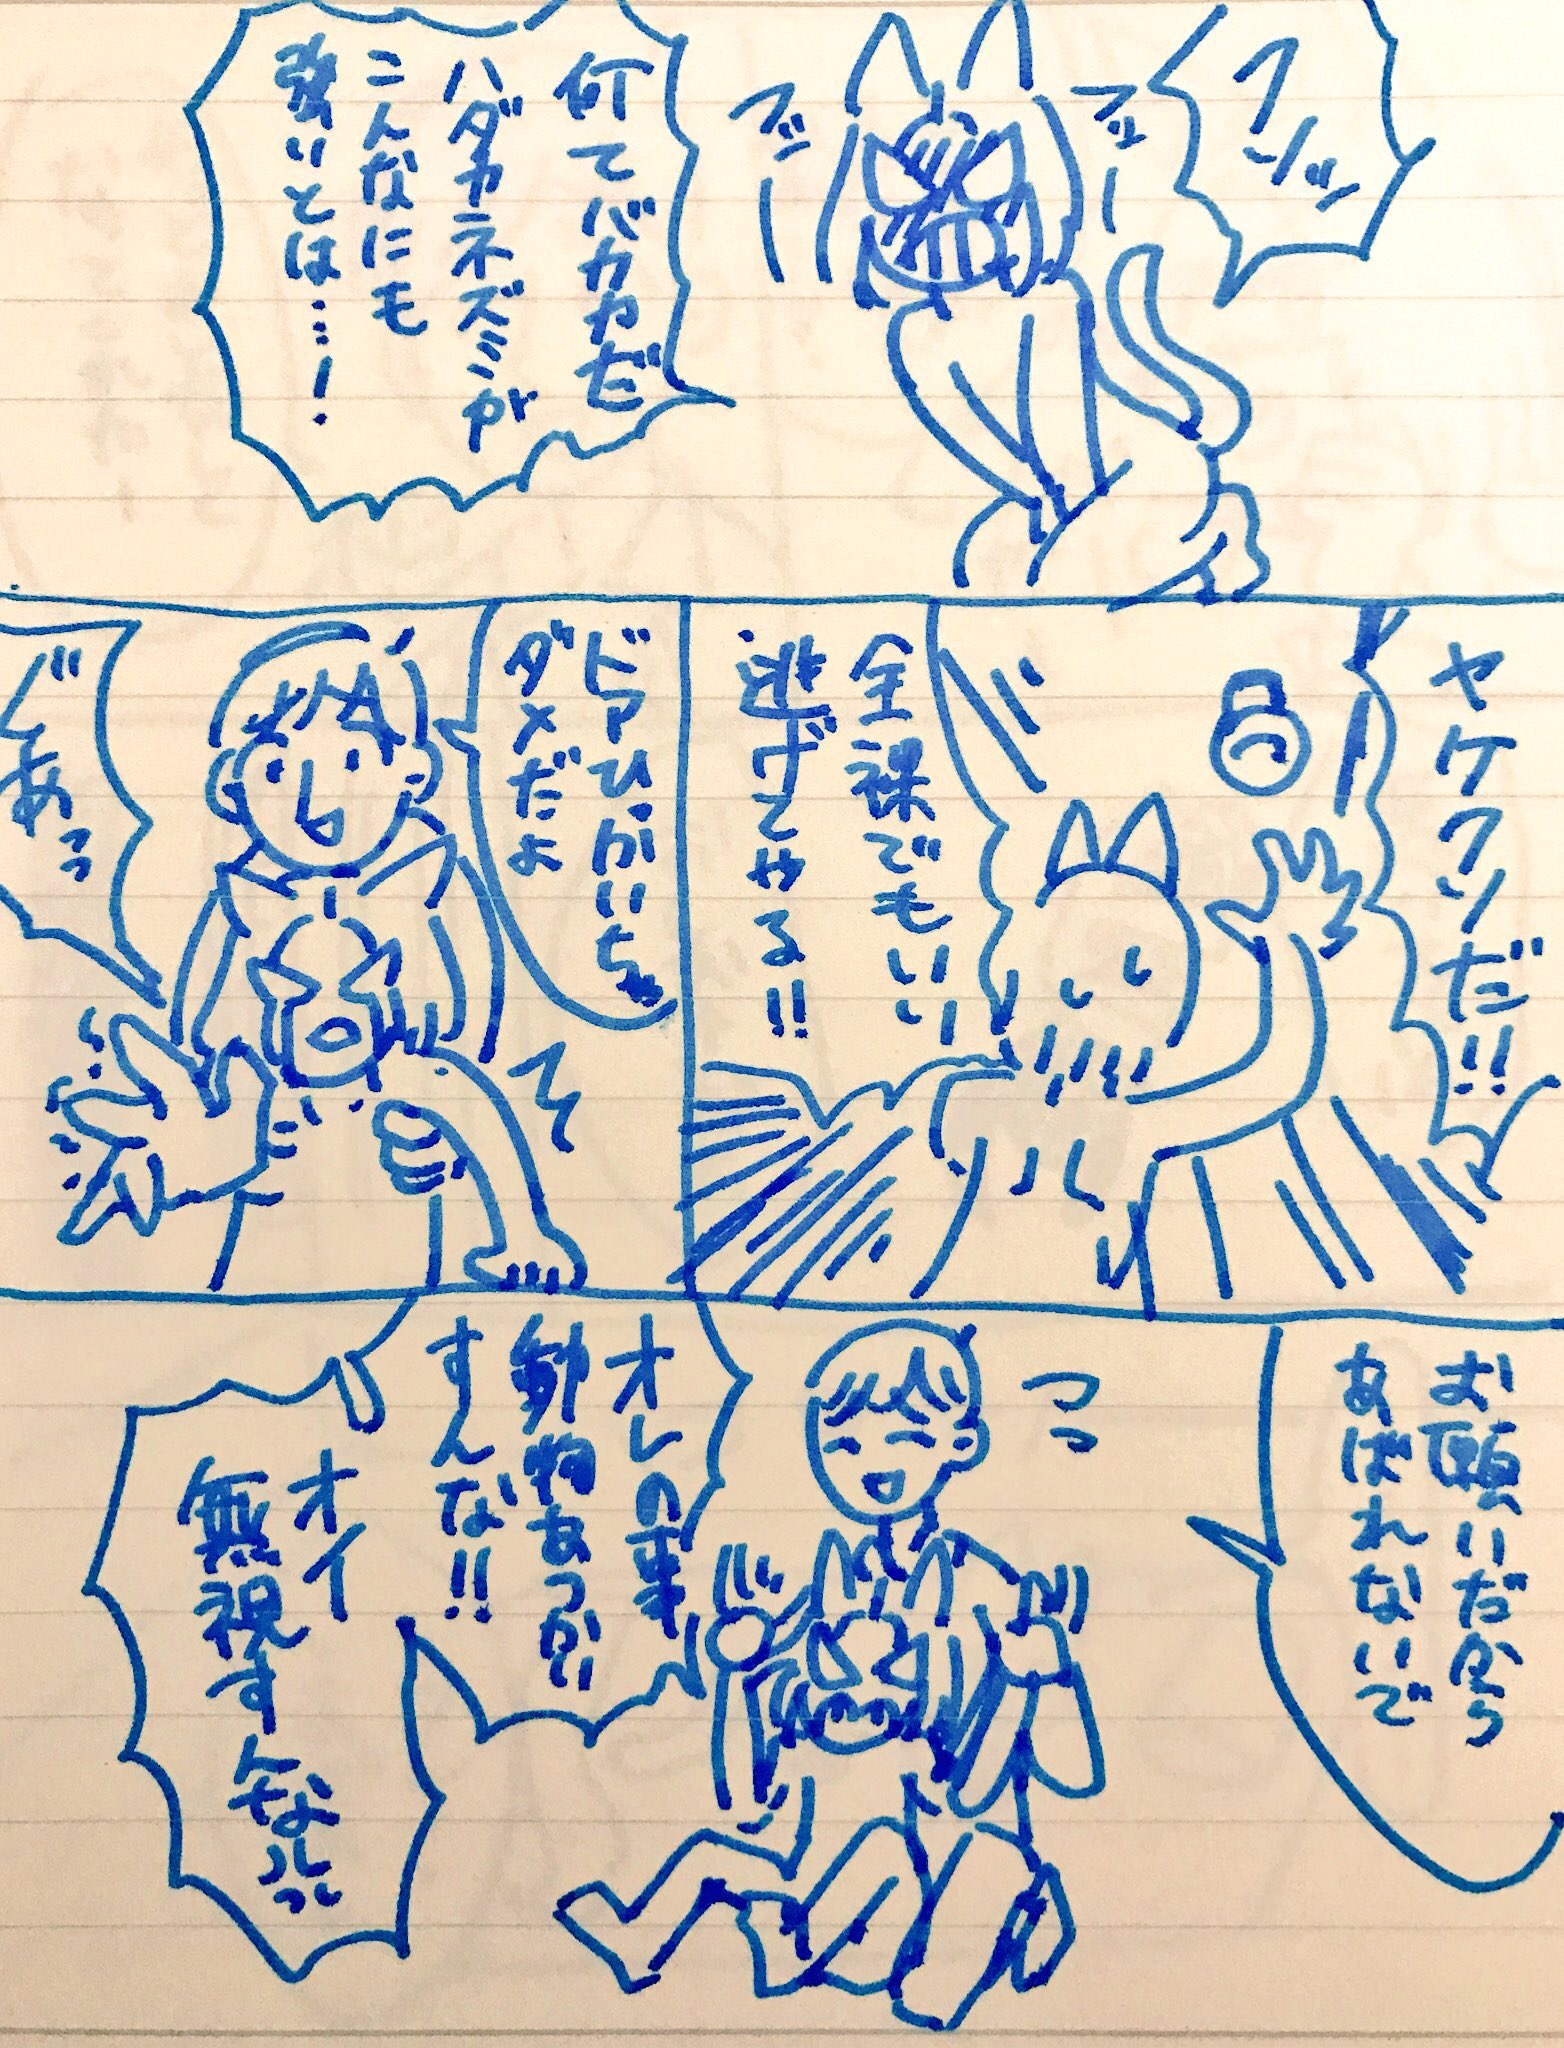 クソッ
何てバカカだ
ハダカネズミが
こんなにも
強いとは…!
ヤケクソだ!!
全裸でもいい
逃げてやる!!
ドアひっかいちゃ
ダメだよ
ぐあっっ
お願いだから
あばれないで
オレの事
動物あつかい
すんな!!
オイ
無視すんなルル